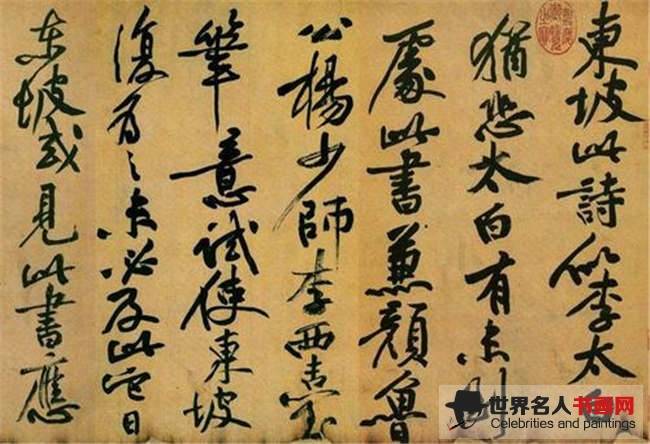 東坡此詩似李太白
猶恐太白有未到
處此書兼顔魯
公楊少師李西臺
筆意試使東坡
復為之未必及此它日
东坡或見此書應
世界名人书画网
Celebrities and paintings